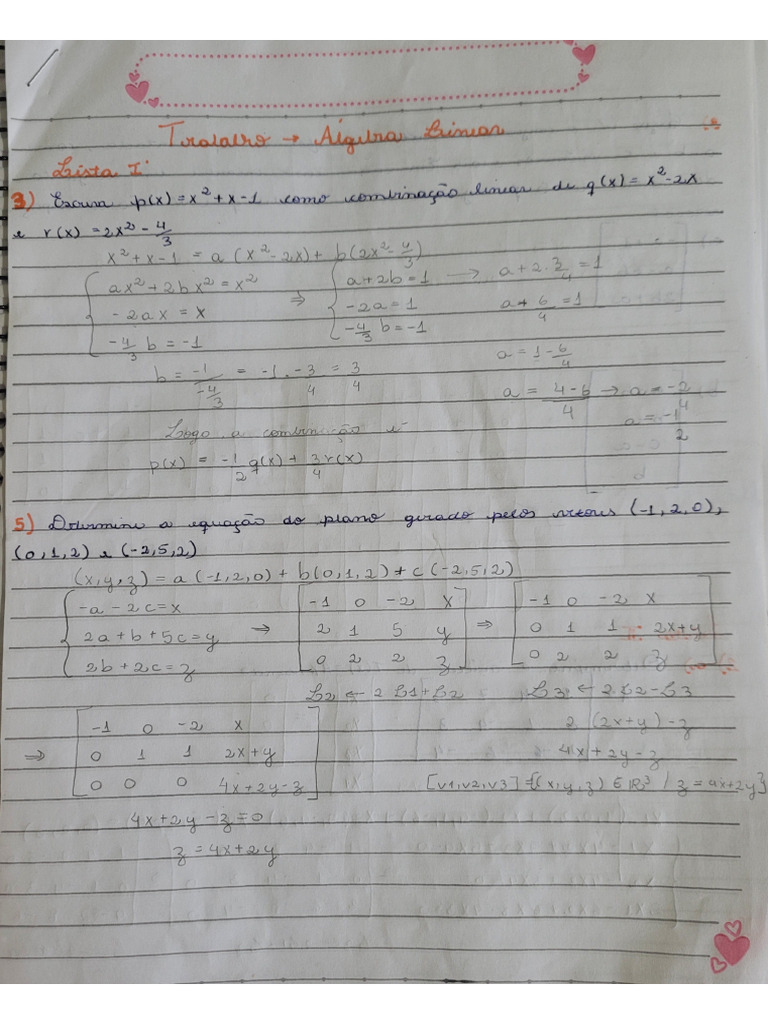 Trabalho → Álgebra Linear
Lista I
3) Escreva p(x) = x² + x - 1 como combinação linear de q(x) = x² - 2x
e r(x) = 2x² - 4/3
x² + x - 1 = a (x² - 2x) + b(2x² - 4/3)
ax² + 2bx² = x² ⇒ a + 2b = 1 → a + 2 . 3/4 = 1
- 2ax = x
-2a = 1
a + 6/4 = 1
-4/3 b = -1
-4/3 b = -1
a = 1 - 6/4
b = -1/-4/3 = -1 . -3/4 = 3/4
a = 4-6/4 → a = -2/4
a = -1/2
Logo a combinação é
p(x) = -1/2 q(x) + 3/4 r(x)
5) Determine a equação do plano gerado pelos vetores (-1, 2, 0),
(0, 1, 2) e (-2, 5, 2)
(x, y, z) = a (-1, 2, 0) + b(0, 1, 2) + c (-2, 5, 2)
-a - 2c = x
2a + b + 5c = y
2b + 2c = z
⇒
-1 0 -2 x
2 1 5 y
0 2 2 z
⇒
-1 0 -2 x
0 1 1 2x+y
0 2 2 z
L2 ← 2 L1 + L2
L3 ← 2 L2 - L3
⇒
-1 0 -2 x
0 1 1 2x+y
0 0 0 4x+2y-z
2 (2x+y) - z
4x + 2y - z
[v1, v2, v3] = {(x, y, z) ∈ IR³ / z = 4x+2y}
4x + 2y - z = 0
z = 4x + 2y